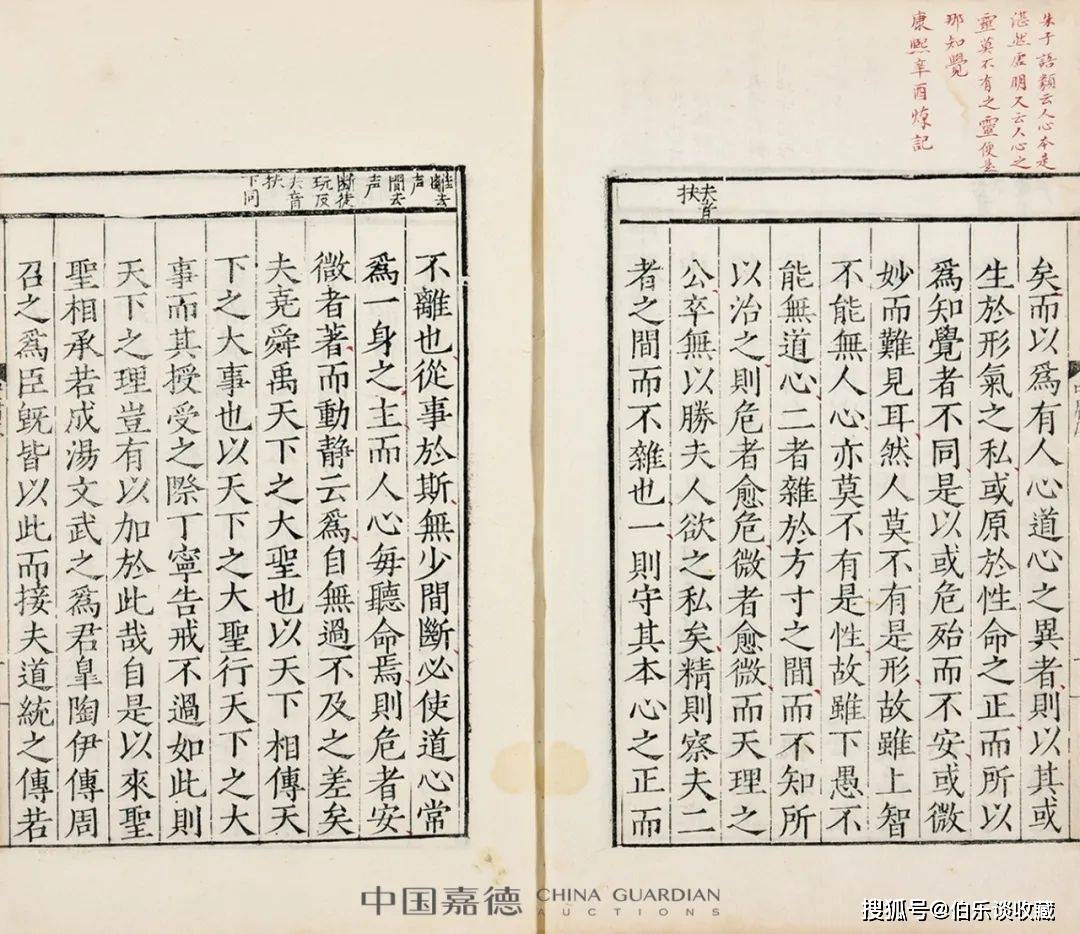 朱子語類云人心本是
湛然虛明又云人心之
靈莫不有之靈便是
那知覺
康熙辛酉
夫音
扶
矣而以爲有人心道心之異者則以其或
生於形氣之私或原於性命之正而所以
爲知覺者不同是以或危殆而不安或微
妙而難見耳然人莫不有是形故雖上智
不能無人心亦莫不有是性故雖下愚不
能無道心二者雜於方寸之間而不知所
以治之則危者愈危微者愈微而天理之
公卒無以勝夫人欲之私矣精則察夫二
者之間而不雜也一則守其本心之正而
離去
声
間去
声
斷徒
玩反
夫音
扶
下同
不離也從事於斯無少間斷必使道心常
爲一身之主而人心每聽命焉則危者安
微者著而動靜云爲自無過不及之差矣
夫堯舜禹天下之大聖也以天下相傳天
下之大事也以天下之大聖行天下之大
事而其授受之際丁寧告戒不過如此則
天下之理豈有以加於此哉自是以來聖
聖相承若成湯文武之爲君臯陶伊傅周
召之爲臣旣皆以此而接夫道統之傳若
中国嘉德 CHINA GUARDIAN
AUCTIONS
搜狐号@伯乐谈收藏